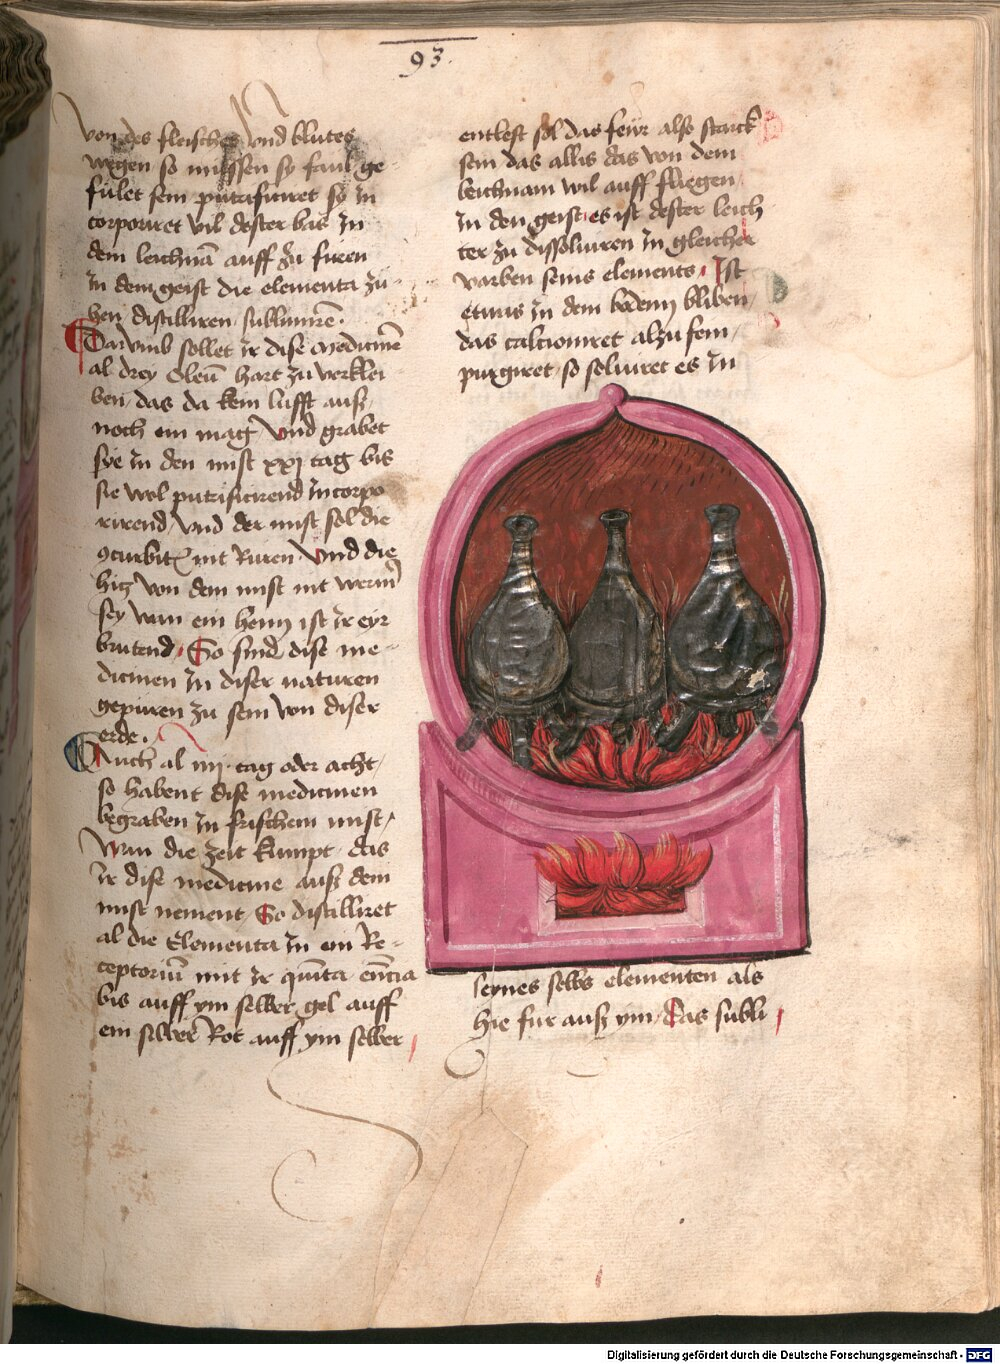 93.
von des fleisches vnd blutes
wegen so müssen sy faul ge-
fület sein putrificiret so in
corporiret vil dester bas in
dem leichnā auff zu füren
in dem geist die elementa zü-
hen distilliren sublimirē
Darvmb sollet ir dise medicinē
al drey Oleū hart zu verklei
ben, das da kein lufft auß,
noch ein mag, Vnd grabet
sye in den mist xxj tag bis
sie wol putrificirend incorpo
rirend, vnd der mist sol die
curbitē nit Ruren. Vnd die
hitz von dem mist nit wermer
sey wan ein henn ist ir eyr
brutend, So sind dise me-
dicinen in diser naturen
gepüren zu sein von diser
erde.
Auch al iiij. tag oder acht,
so habent dise medicinen
begraben in frischem mist,
Wan die zeit kumpt, das
ir dise medicine auß dem
mist nement, So distilliret
al die Elementa in ein Re-
ceptoriū mit ir quīta en̄cia
bis auff ym selber gel auff
ein selber Rot auff ym selber
entlest sol das feür also starck
sein das allis das von dem
leichnam wil auff fliegen,
in den geist, es ist dester leich
ter zu dissoluiren in gleicher
varben seins elements, Ist
etwas in dem bodem bliben,
das calcioniret alzu fein,
purgiret, so soluiret es in
seynes selbs elementen als
hie fur auß ym, das subli
Digitalisierung gefördert durch die Deutsche Forschungsgemeinschaft - DFG